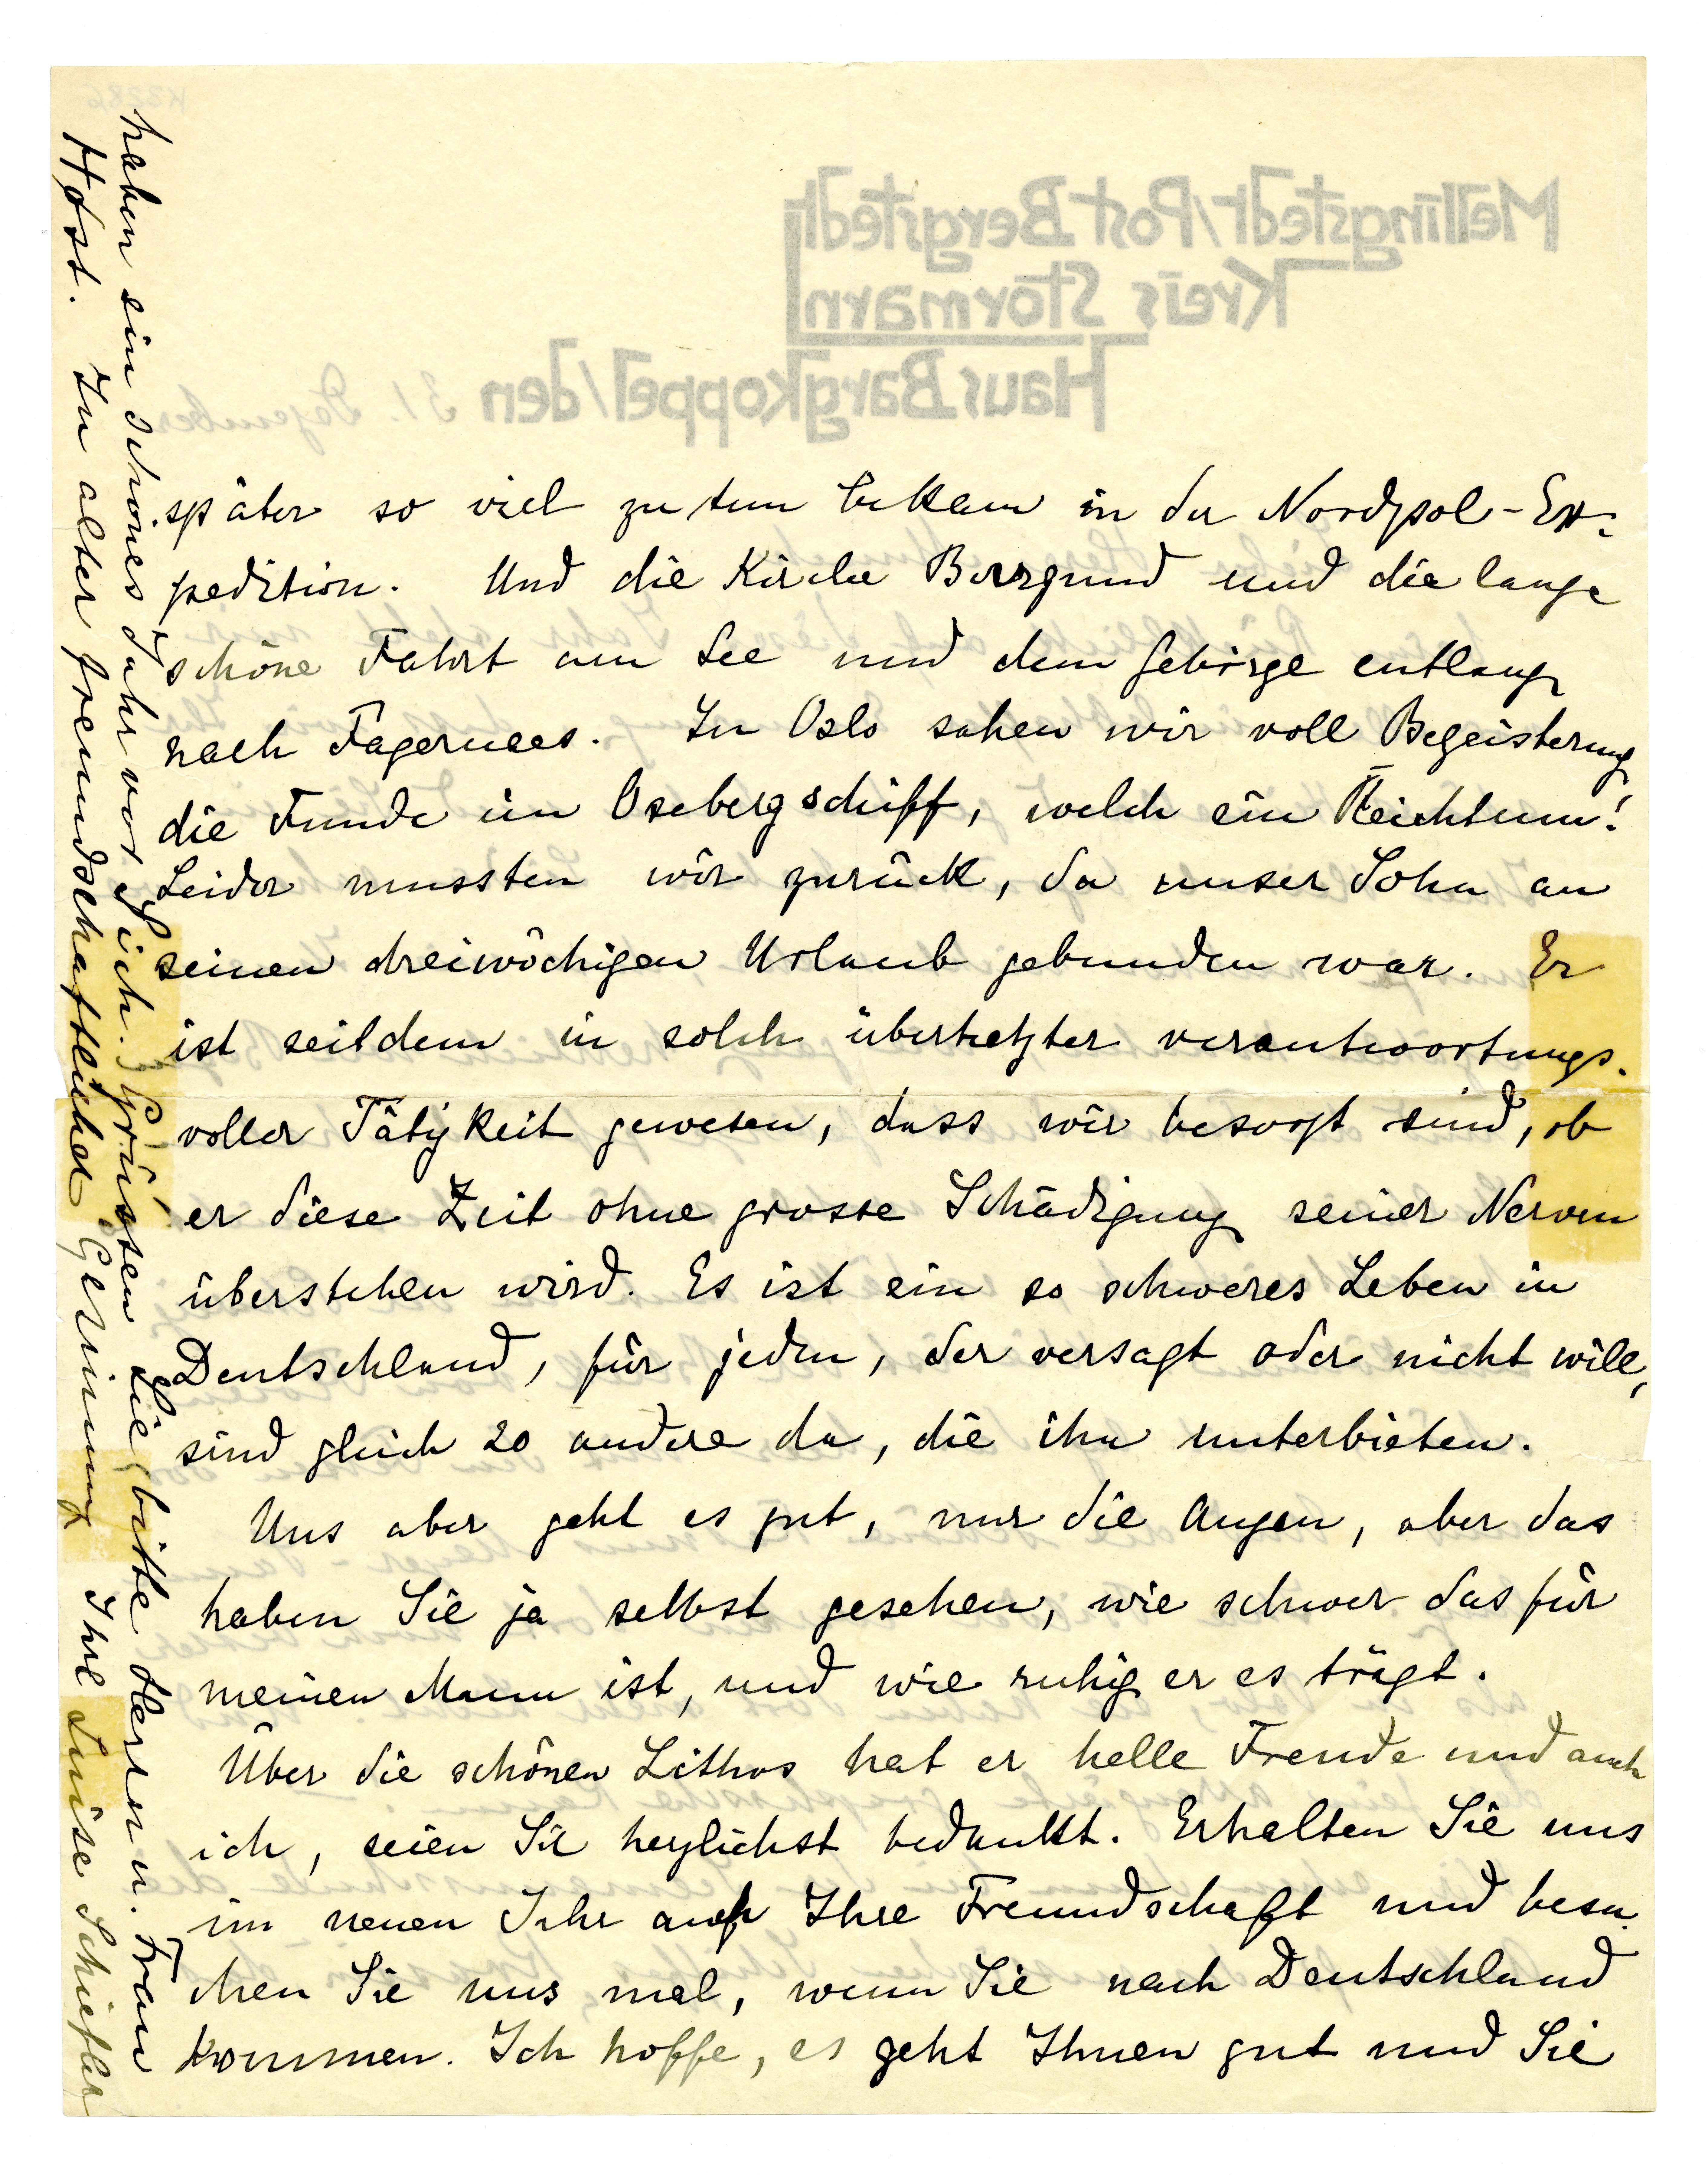 später so viel zu tun bekam in der Nordpol-Ex-
pedition. Und die Kirche Borrgund und die lange
schöne Fahrt am See und dem Gebirge entlang
nach Fagernees. In Oslo sahen wir voll Begeisterung
die Funde im Osebergschiff, welch ein Reichtum!
Leider mussten wir zurück, da unser Sohn an
seinen dreiwöchigen Urlaub gebunden war. Er
ist seitdem in solch überhetzter verantwortungs-
voller Tätigkeit gewesen, dass wir besorgt sind, ob
er diese Zeit ohne grosse Schädigung seiner Nerven
überstehen wird. Es ist ein so schweres Leben in
Deutschland, für jeden, der versagt oder nicht will,
sind gleich 20 andere da, die ihn unterbieten.
Uns aber geht es gut, nur die Augen, aber das
haben Sie ja selbst gesehen, wie schwer das für
meinen Mann ist, und wie ruhig er es trägt.
Über die schönen Lithos hat er helle Freude und auch
ich, seien Sie herzlichst bedankt. Erhalten Sie uns
im neuen Jahr auch Ihre Freundschaft und besu-
chen Sie uns mal, wenn Sie nach Deutschland
kommen. Ich hoffe, es geht Ihnen gut und Sie
haben ein schönes Jahr vor sich. Grüssen Sie bitte Herrn u. Frau
Høst. In alter freundschaftlicher Gesinnung Ihre Luise Schiefler
Mellingstedt/Post Bergstedt
Kreis Stormarn
Haus Bargkoppel/den 31. Dezember